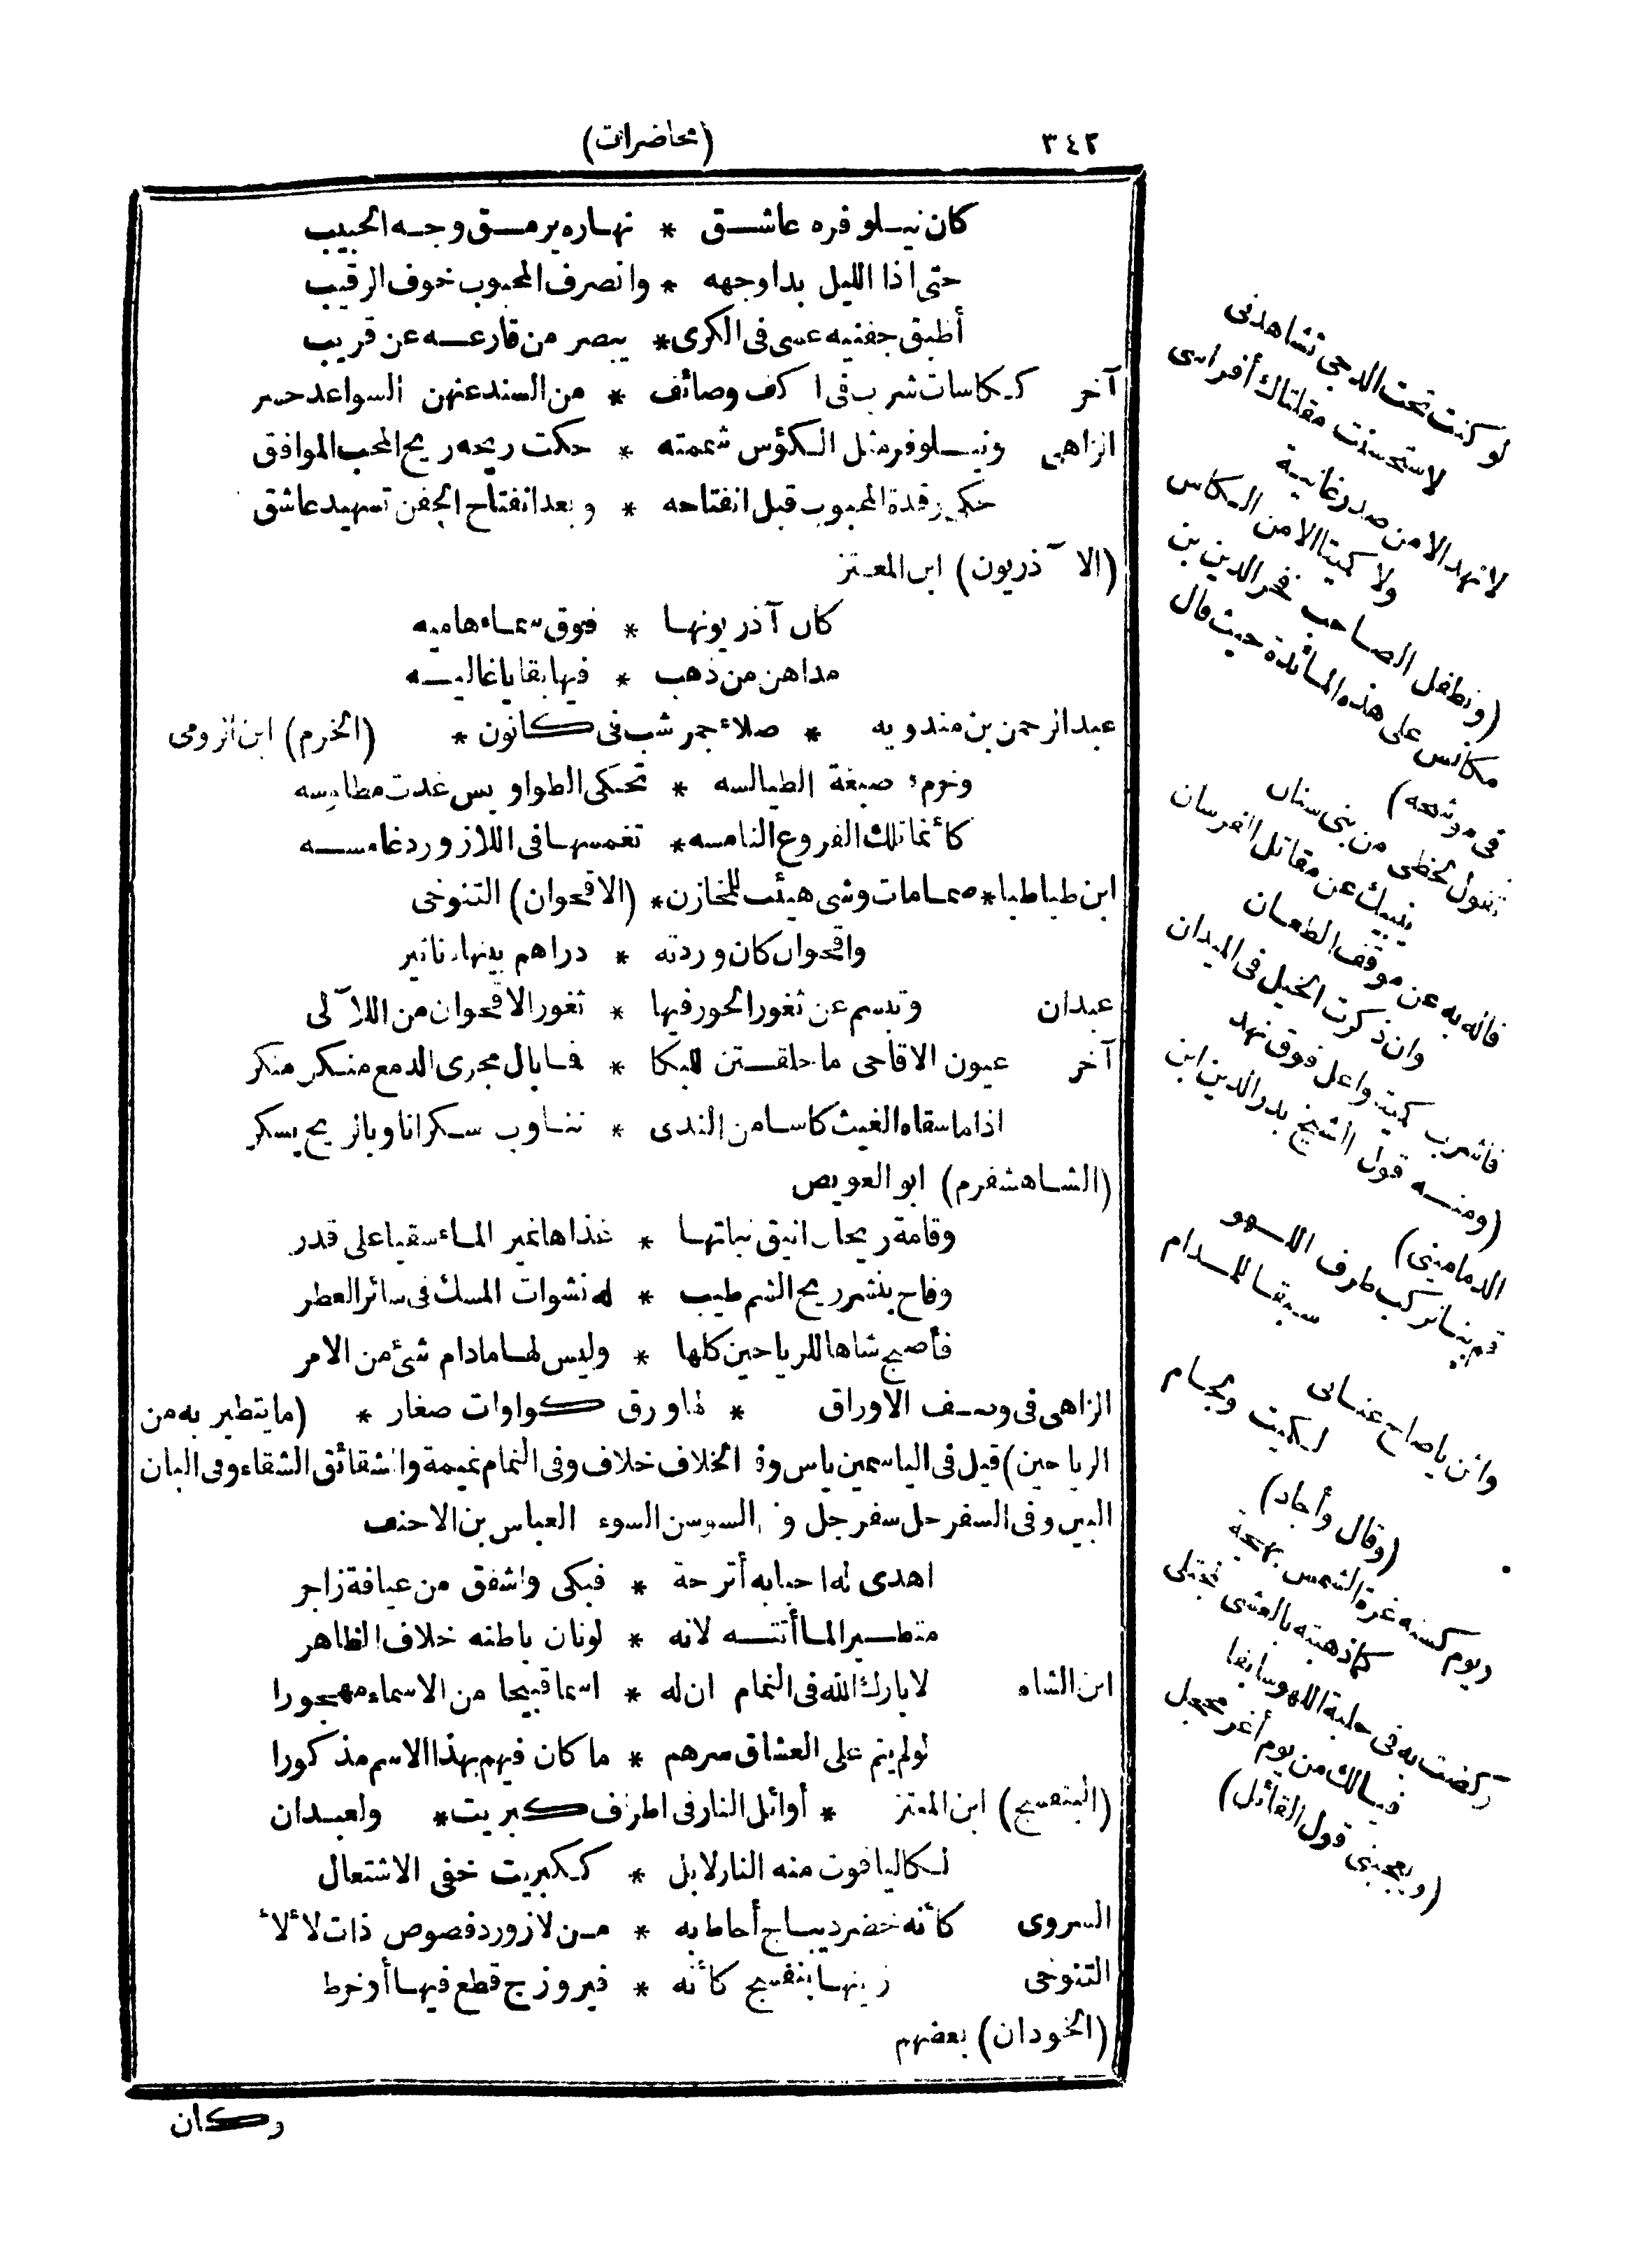 ٣٤٢
(محاضرات)
كان نيلوفره عاشق * نهاره يرمق وجه الحبيب
حتى اذا الليل بدا وجهه * وانصرف المحبوب خوف الرقيب
أطبق جفنيه عسى فى الكرى * يبصر من فارعه عن قريب
آخر ككاسات شرب فى اكف وصائف * من السند عنهن السواعد حسر
الزاهى ونيلوفر مثل الكؤس شممته * حكت ريحه ريح المحب الموافق
حكى رقدة المحبوب قبل انفتاحه * وبعد انفتاح الجفن تسهيد عاشق
(الا آذريون) ابن المعتز
كان آذريونها * فوق سماء هاميه
مداهن من ذهب * فيها بقايا غاليه
عبد الرحمن بن مندويه * صلاء جمر شب فى كانون * (الخرم) ابن الرومى
وخرم صبغة الطيالسه * تحكى الطواويس غدت مطاوسه
كأنما تلك الفروع النامسه * تغمسها فى اللازورد غامسه
ابن طباطبا * صمامات وشى هيئت للمخازن * (الاقحوان) التنوخى
واقحوان كان وردته * دراهم بينها دنانير
عبدان وتبسم عن ثغور الحور فيها * ثغور الاقحوان من اللآلى
آخر عيون الاقاحى ما خلقتن للبكا * فما بال مجرى الدمع منكن منكر
اذا ما سقاه الغيث كاسا من الندى * تناوب سكرانا وبالريح يسكر
(الشاهشفرم) ابو العويص
وقامة ريحان انيق نباتها * غذاها نمير الماء سقيا على قدر
وفاح بنشر ريح الشم طيب * له نشوات المسك فى سائر العطر
فأصبح شاها للرياحين كلها * وليس لها مادام شئ من الامر
الزاهى فى وصف الاوراق * لها ورق كواوات صغار * (ما يتطير به من
الرياحين) قيل فى الياسمين ياس وفى الخلاف خلاف وفى النمام نميمة والشقائق الشقاء وفى البان
البين وفى السفرجل سفر جل وفى السوسن السوء العباس بن الاحنف
اهدى له احبابه أترجة * فبكى واشفق من عيافة زاجر
متطيرا لما أتته لانه * لونان باطنه خلاف الظاهر
ابن الشاه لا بارك الله فى النمام ان له * اسما قبيحا من الاسماء مهجورا
لو لم ينم على العشاق سرهم * ما كان فيهم بهذا الاسم مذكورا
(البنفسج) ابن المعتز * أوائل النار فى اطراف كبريت * ولعبدان
لكاليافوت منه النار لا بل * ككبريت خفى الاشتعال
السروى كأنه خضر ديباج أحاط به * من لازورد فصوص ذات لألاء
التنوخى زينها بنفسج كأنه * فيروزج قطع فيها أو خرط
(الخودان) بعضهم
وكان
لو كنت تحت الدجى تشاهدنى
لاستحسنت مقلتاك أفراسى
لا نهد الا من صدر غانية
ولا كميتا الا من الكاس
(وتطفل الصاحب فخر الدين بن
مكانس على هذه المائدة حيث قال
فى موشحه)
تقول لحظى من بنى سنان
ينبيك عن مقاتل الفرسان
فاله به عن موقف الطعان
وان ذكرت الخيل فى الميدان
فاشرب كميتا واعل فوق نهد
(ومنه قول الشيخ بدر الدين ابن
الدمامينى)
قم بنا نركب طرف اللهو
سبقا للمدام
واثن يا صاح عنانى
لكميت ولجام
(وقال وأجاد)
ويوم كسته غرة الشمس بهجة
كما ذهبته بالعشى
ركضت به فى حلبة اللهو سابقا
فيالك من يوم أغر محجل
(ويعجبنى قول القائل)